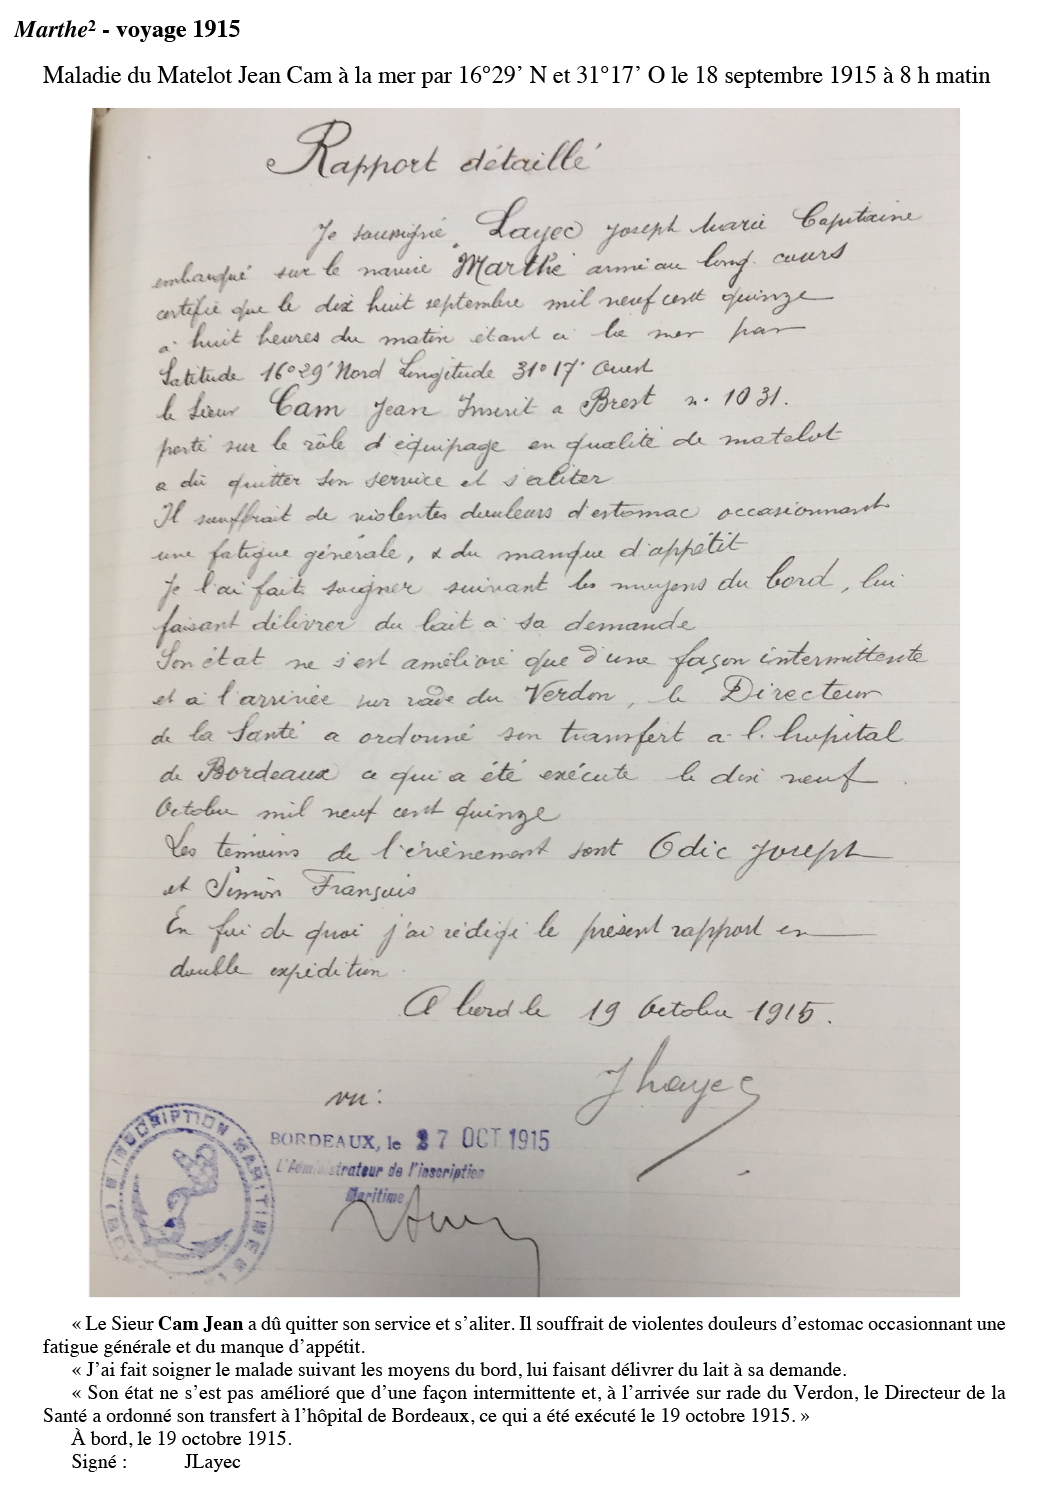 Marthe² - voyage 1915
Maladie du Matelot Jean Cam à la mer par 16°29’ N et 31°17’ O le 18 septembre 1915 à 8 h matin
Rapport détaillé
Je soussigné, Layec Joseph Marie Capitaine
embarqué sur le navire "Marthe" armé au long cours
certifie que le dix huit septembre mil neuf cent quinze
a huit heures du matin étant a la mer par
Latitude 16°29' Nord Longitude 31°17' Ouest
le Sieur Cam Jean Inscrit a Brest n° 1031.
porté sur le rôle d'équipage en qualité de matelot
a dû quitter son service et s'aliter
Il souffrait de violentes douleurs d'estomac occasionnant
une fatigue générale, & du manque d'appétit
Je l'ai fait soigner suivant les moyens du bord, lui
faisant délivrer du lait a sa demande
Son état ne s'est amélioré que d'une façon intermittente
et a l'arrivée sur rade du Verdon, le Directeur
de la Santé a ordonné son transfert a l'hopital
de Bordeaux ce qui a été exécuté le dix neuf
Octobre mil neuf cent quinze
Les témoins de l'évènement sont Odic Joseph
et Simon François
En foi de quoi j'ai rédigé le présent rapport en
double expédition.
A bord le 19 Octobre 1915.
JLayec
vu:
BORDEAUX, le 27 OCT 1915
L'Administrateur de l'inscription
Maritime
INSCRIPTION MARITIME
« Le Sieur Cam Jean a dû quitter son service et s’aliter. Il souffrait de violentes douleurs d’estomac occasionnant une
fatigue générale et du manque d’appétit.
« J’ai fait soigner le malade suivant les moyens du bord, lui faisant délivrer du lait à sa demande.
« Son état ne s’est pas amélioré que d’une façon intermittente et, à l’arrivée sur rade du Verdon, le Directeur de la
Santé a ordonné son transfert à l’hôpital de Bordeaux, ce qui a été exécuté le 19 octobre 1915. »
À bord, le 19 octobre 1915.
Signé : JLayec